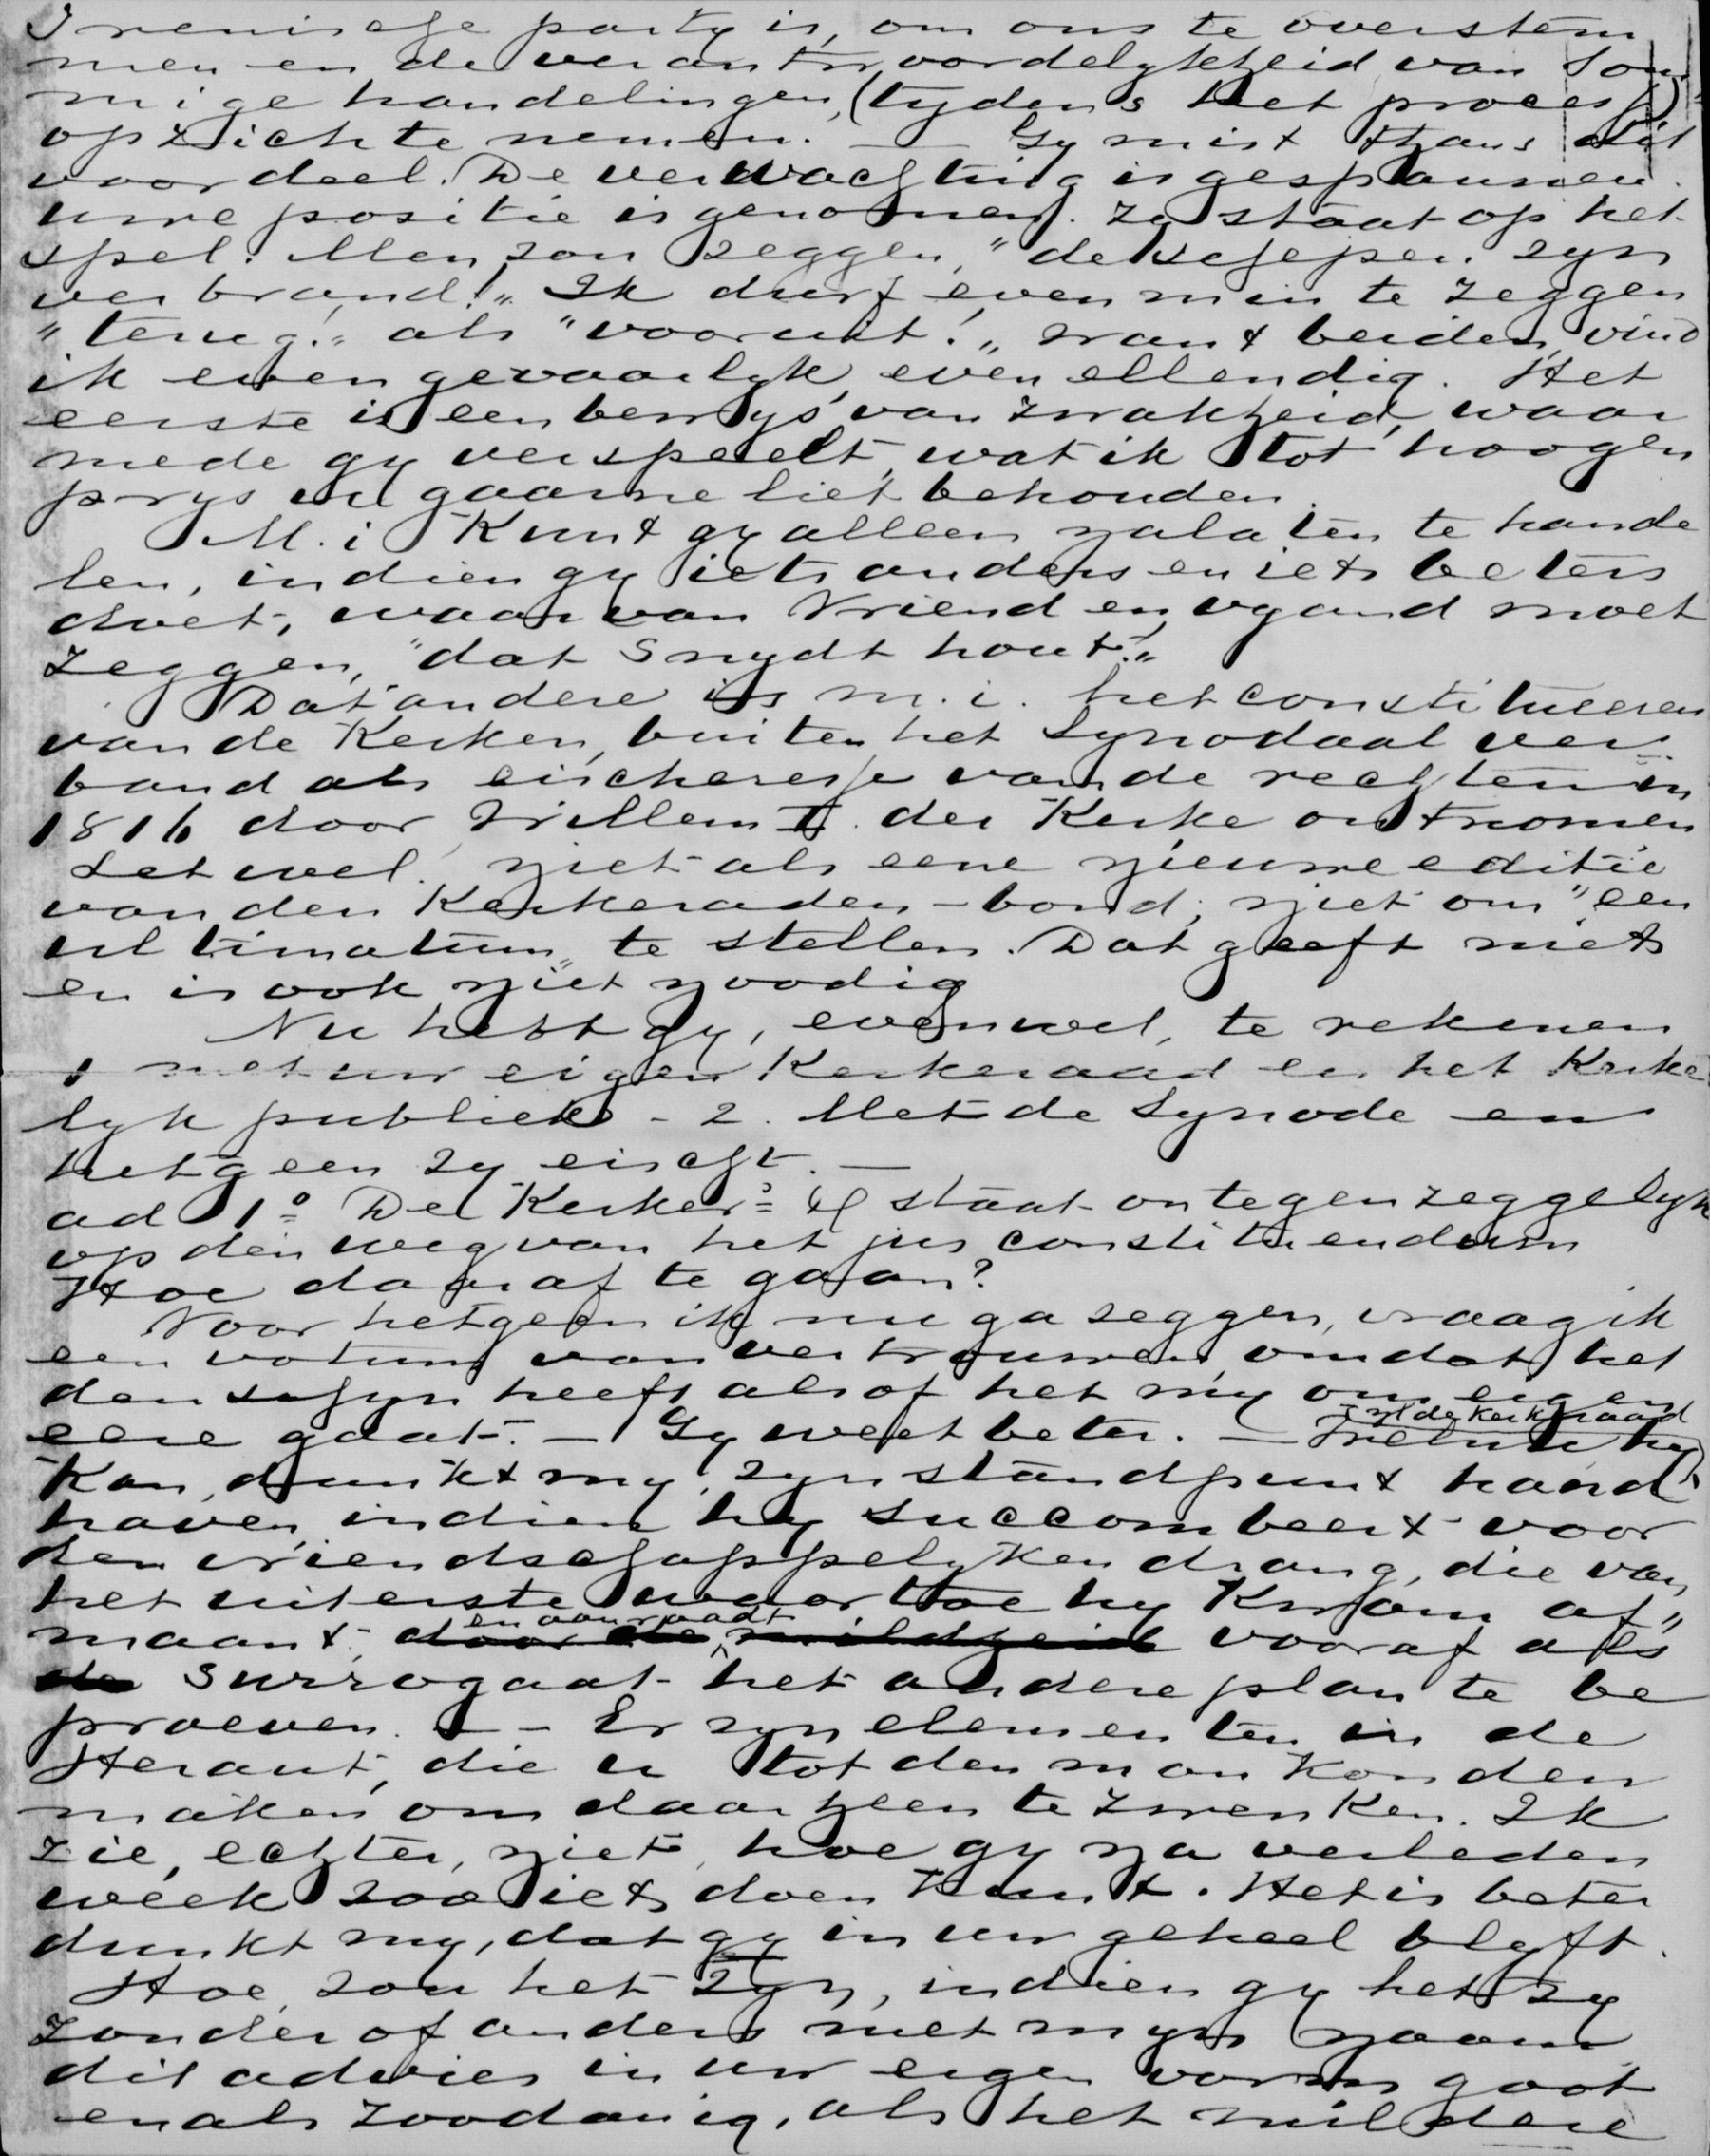 Irenische party is, om ons te overstem
men en de verantwoordelykheid van Som
mige handelingen, (tydens het proces)
op zich te nemen. — Gy mist thans dit
voordeel. De verwachting is gespannen.
uwe positie is genomen. Zy staat op het
spel. Men zou zeggen, "de schepen zyn
verbrand!„ Ik durf evenmin te zeggen
"terug.„ als "vooruit!„ want beiden vind
ik even gevaarlyk even ellendig. Het
eerste is een bewys van zwakheid, waar
mede gy verspeelt, wat ik tot hoogen
prys u gaarne liet behouden.
M. i Kunt gy alleen nalaten te hande
len, indien gy iets anders en iets beters
doet, waarvan Vriend en vyand moet
zeggen, "dat Snydt hout.„
Dat andere is m. i. het constitueeren
van de Kerken, buiten het Synodaal ver
band als eischeresse van de rechten in
1816 door Willem I. der Kerke ontnomen
Let wel! niet als eene nieuwe editie
van den Kerkeraden-bond; niet om "een
ultimatum„ te stellen. Dat geeft niets
en is ook niet noodig
Nu hebt gy, evenwel, te rekenen
1 met uw eigen Kerkeraad en het Kerke
lyk publiek - 2. Met de Synode en
hetgeen zy eischt. —
ad 1º De Kerker= staat ontegenzeggelyk
op den weg van het jus constituendum
Hoe daaraf te gaan?
Voor hetgeen ik nu ga zeggen, vraag ik
een votum van vertrouwen, omdat het
den schyn heeft alsof het my om eigen
eere gaat. — Gy weet beter. — Welnu hy
nl de kerkeraad
Kan, dunkt my, zyn standpunt hand
haven, indien hy succombeert voor
den vriendschappelyken drang, die van
het uiterste waartoe hy Kwam af„
maant, en aanraadt vooraf als
surrogaat het andere plan te be
proeven. — Er zyn elementen in de
Heraut, die u tot den man konden
maken om daarheen te zwenken. Ik
zie, echter, niet, hoe gy na verleden
week zoo iets doen Kunt. Het is beter
dunkt my, dat gy in uw geheel blyft.
Hoe zou het zyn, indien gy het zy
zonder of anders met myn naam
dit advies in uw eigen vorm goot
en als zoodanig, als het mildere